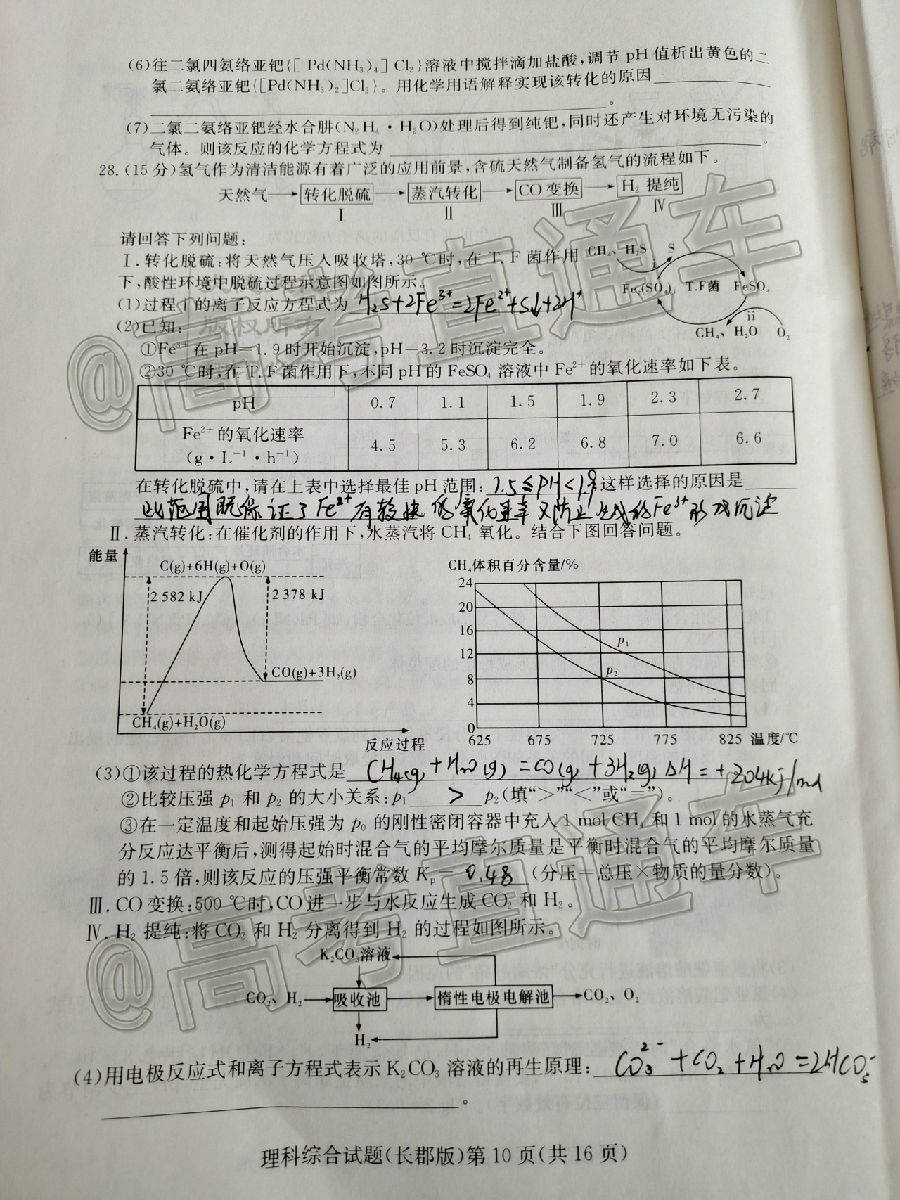 (6)往二氯四氨络亚钯{[Pd(NH₃)₄]Cl₂}溶液中搅拌滴加盐酸,调节 pH 值析出黄色的二
氯二氨络亚钯{[Pd(NH₃)₂]Cl₂}。用化学用语解释实现该转化的原因
。
(7)二氯二氨络亚钯经水合肼(N₂H₄·H₂O)处理后得到纯钯,同时还产生对环境无污染的
气体。则该反应的化学方程式为 。
28.(15 分)氢气作为清洁能源有着广泛的应用前景,含硫天然气制备氢气的流程如下。
天然气 → 转化脱硫 → 蒸汽转化 → CO 变换 → H₂ 提纯
Ⅰ Ⅱ Ⅲ Ⅳ
请回答下列问题:
Ⅰ.转化脱硫:将天然气压入吸收塔,30 ℃时,在 T.F 菌作用
下,酸性环境中脱硫过程示意图如图所示。
CH₄、H₂S S
i
Fe₂(SO₄)₃ T.F菌 FeSO₄
ii
CH₄、H₂O O₂
(1)过程 i 的离子反应方程式为 H₂S+2Fe³⁺=2Fe²⁺+S↓+2H⁺
(2)已知:
①Fe³⁺在 pH=1.9 时开始沉淀,pH=3.2 时沉淀完全。
②30 ℃时,在 T.F 菌作用下,不同 pH 的 FeSO₄ 溶液中 Fe²⁺的氧化速率如下表。
pH 0.7 1.1 1.5 1.9 2.3 2.7
Fe²⁺的氧化速率
(g·L⁻¹·h⁻¹) 4.5 5.3 6.2 6.8 7.0 6.6
在转化脱硫中,请在上表中选择最佳 pH 范围: 1.5≤PH<1.9 这样选择的原因是
此范围既保证了Fe²⁺有较快的氧化速率又防止生成的Fe³⁺形成沉淀
Ⅱ.蒸汽转化:在催化剂的作用下,水蒸汽将 CH₄ 氧化。结合下图回答问题。
能量
C(g)+6H(g)+O(g)
2 582 kJ 2 378 kJ
CO(g)+3H₂(g)
CH₄(g)+H₂O(g)
反应过程
CH₄体积百分含量/%
24
20
16
12
8
4
0
p₁
p₂
625 675 725 775 825 温度/℃
(3)①该过程的热化学方程式是 CH₄(g)+H₂O(g)=CO(g)+3H₂(g) ΔH=+204kJ/mol
②比较压强 p₁ 和 p₂ 的大小关系:p₁ > p₂(填“>”“<”或“=”)。
③在一定温度和起始压强为 p₀ 的刚性密闭容器中充入 1 mol CH₄ 和 1 mol 的水蒸气充
分反应达平衡后,测得起始时混合气的平均摩尔质量是平衡时混合气的平均摩尔质量
的 1.5 倍,则该反应的压强平衡常数 Kₚ= 0.48 (分压=总压×物质的量分数)。
Ⅲ.CO 变换:500 ℃时,CO 进一步与水反应生成 CO₂ 和 H₂。
Ⅳ.H₂ 提纯:将 CO₂ 和 H₂ 分离得到 H₂ 的过程如图所示。
K₂CO₃溶液
CO₂、H₂ → 吸收池 → 惰性电极电解池 → CO₂、O₂
H₂
(4)用电极反应式和离子方程式表示 K₂CO₃ 溶液的再生原理: CO₃²⁻+CO₂+H₂O=2HCO₃⁻
。
理科综合试题(长郡版)第 10 页(共 16 页)
@高考直通车
版权所有
@高考直通车